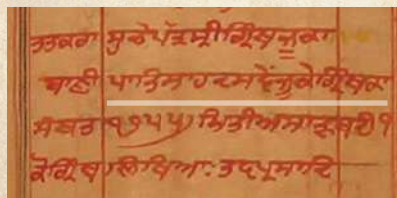 ਤਤਕਰਾ ਸੂਚੋਪੱਤ੍ਰ ਸ੍ਰੀ ਗ੍ਰਿੰਥ ਜੂ ਕਾ
ਬਾਣੀ ਪਾਤਿਸਾਹ ਦਸਵੇਂ ਜੂ ਕੇ ਗ੍ਰਿੰਥ ਕਾ
ਸੰਬਤ ੧੭੫੫ ਮਿਤੀ ਅਸਾੜ ਬਦੀ ੧
ਕੋ ਗ੍ਰਿੰਥ ਲਿਖਿਆ: ਤ੍ਵਪ੍ਰਸਾਦਿ